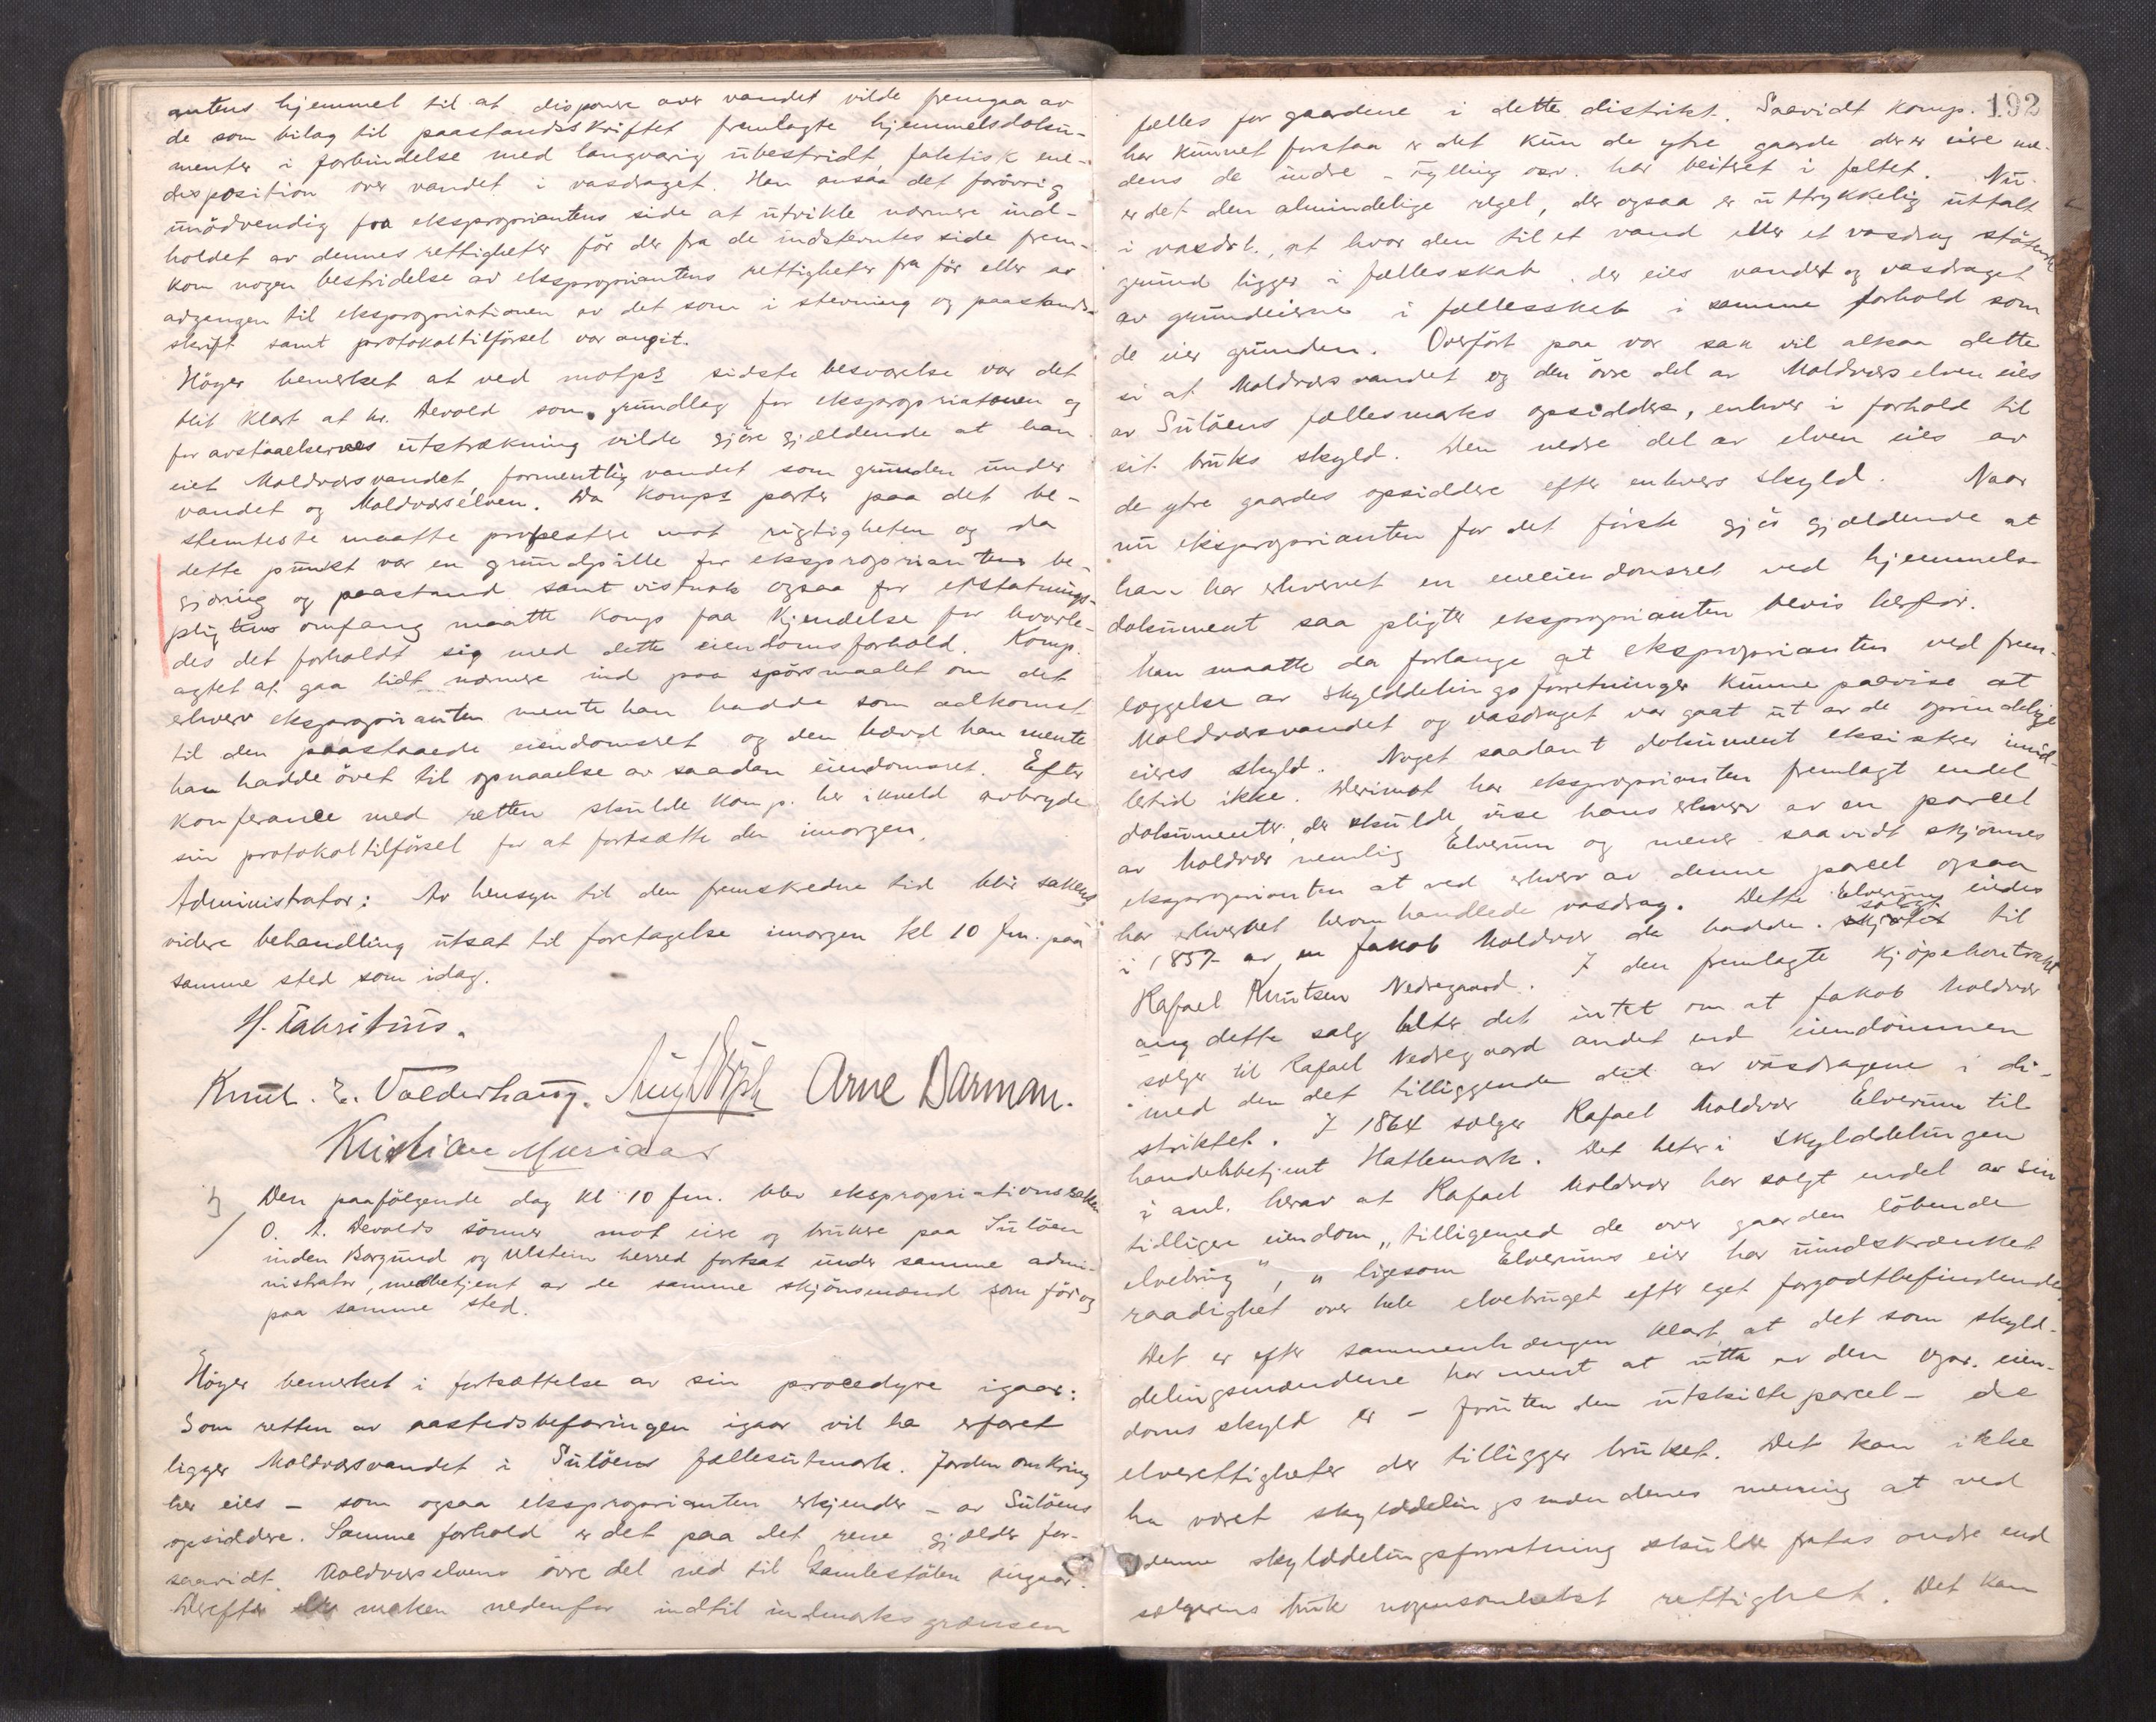 antens hjemmel til at disponere over vandet vilde fremgaa av
de som bilag til paastandsskriftet fremlagte hjemmelsdoku-
menter i forbindelse med langvarig ubestridt, faktisk ene-
disposition over vandet i vasdraget. Han ansaa det forövrig
unödvendig fra ekspropriantens side at utvikle nærmere ind-
holdet av dennes rettigheter för der fra de indstevntes side frem-
kom nogen bestridelse av ekspropriantens rettigheter fra för eller av
adgangen til ekspropriationen av det som i stevning og paastands-
skrift samt protokoltilförsel var angit.
Höyer bemerket at ved motps sidste besvarelse var det
blit klart at hr. Devold som grundlag for ekspropriationen og
for avstaaelsernes utstrækning vilde gjöre gjældende at han
eiet Moldværsvandet, formentlig vandet som grunden under
vandet og Moldværselven. Da komps parter paa det be-
stemteste maatte protestere mot rigtigheten og da
dette punkt var en grundpille for ekspropriantens be-
gjæring og paastand samt vistnok ogsaa for erstatnings-
pligtens omfang maatte komp faa kjendelse for hvorle-
des det forholdt sig med dette eiendomsforhold. Komp.
agtet at gaa lidt nærmere ind paa spörsmaalet om det
erhverv eksproprianten mente han hadde som adkomst
til den paastaaede eiendomsret og den hævd han mente
han hadde övet til opnaaelse av saadan eiendomsret. Efter
konferance med retten skulde komp. her ikveld avbryde
sin protokoltilförsel for at fortsætte den imorgen.
Administrator: Av hensyn til den fremskredne tid blir sakens
videre behandling utsat til foretagelse imorgen kl 10 fm. paa
samme sted som idag.
Knut. E. Valderhaug. Arne Barman.
Kristian
Den paafölgende dag kl 10 fm. blev ekspropriationssaken
O. A. Devolds sönner mot eiere og brukere paa Sulöen
inden Borgund og Ulstein herred fortsat under samme admi-
nistrator, medbetjent av de samme skjönsmænd som för og
paa samme sted.
Höyer bemerket i fortsættelse av sin procedyre igaar:
Som retten av aastedsbefaringen igaar vil ha erfaret
ligger Moldværsvandet i Sulöens fællesutmark. Jorden omkring
her eies – som ogsaa eksproprianten erkjender – av Sulöens
opsiddere. Samme forhold er det paa det rene gjælder for-
saavidt Moldværselvens övre del ned til Gamlestölen angaar.
Derefter maken nedenfor indtil indmarksgrænsen
192
fælles for gaardene i dette distrikt. Saavidt komp.
har kunnet forstaa er det kun de ytre gaarde der er eiere me-
dens de indre – osv. har beitret i feltet. Nu
er det den almindelige regel, der ogsaa er uttrykkelig uttalt
i vasdrl., at hvor den til et vand eller et vasdrag stötende
grund ligger i fællesskab, der eies vandet og vasdraget
av grundeierne i fællesskab i samme forhold som
de eier grunden. Overfört paa vor sak vil altsaa dette
si at Moldværsvandet og den övre del av Moldværselven eies
av Sulöens fællesmarks opsiddere, enhver i forhold til
sit bruks skyld. Den nedre del av elven eies av
de ytre gaardes opsiddere efter enhvers skyld. Naar
nu eksproprianten for det förste gjör gjældende at
han har erhvervet en eneiendomsret ved hjemmels-
dokument saa pligter eksproprianten bevis herfor.
Man maatte da forlange at eksproprianten ved frem-
læggelse av skylddelingsforretninger kunne paavise at
Moldværsvandet og vasdraget var gaat ut av de oprindelige
eieres skyld. Noget saadant dokument eksisterer imid-
lertid ikke. Derimot har eksproprianten fremlagt endel
dokumenter, der skulde vise hans erhverv av en parcel
av Moldvær nemlig Elverum og mener saavidt skjönnes
eksproprianten at ved erhverv av denne parcel ogsaa
har erhvervet heromhandlede vasdrag. Dette Elverum eiedes
i 1857 av en Jakob Moldvær da hadde skjötet solgt til
Rafael Knutsen Nedregaard. I den fremlagte kjöpekontrakt
ang dette salg heter det intet om at Jakob Moldvær
sælger til Rafael Nedregaard andet end eiendommen
med den det tilliggende del av vasdragene i di-
striktet. I 1864 sælger Rafael Moldvær Elverum til
handelsbetjent Hatlemark. Det heter i skylddelingen
i anl. herav at Rafael Moldvær har solgt endel av sin
tidligere eiendom „tilligemed de over gaarden löbende
elvebrug“, „ligesom Elverums eier har uindskrænket
raadighet over hele elvebruget efter eget forgodtbefindende“
Det er efter sammenhængen klart, at det som skyld-
delingsmændene har ment at utta av den opr. eien-
doms skyld er – foruten den utskilte parcel – de
elverettigheter der tilligger bruket. Det kan ikke
ha været skylddelingsmændenes mening at ved
denne skylddelingsforretning skulde fratas andre end
sælgerens bruk nogensomhelst rettighet. Det kan